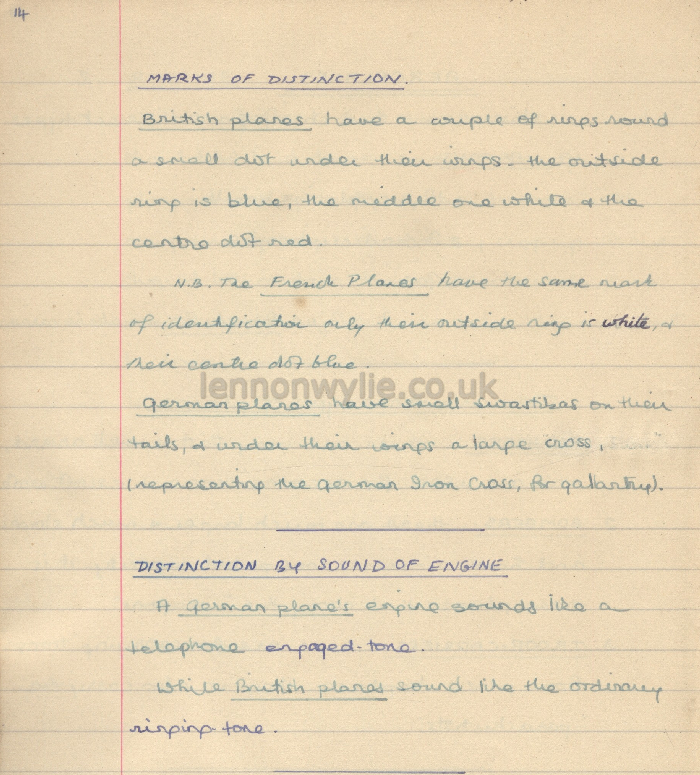 14
MARKS OF DISTINCTION.
British planes have a couple of rings round
a small dot under their wings - the outside
ring is blue, the middle one white & the
centre dot red.
N.B. The French Planes have the same mark
of identification only their outside ring is white, &
their centre dot blue.
lennonwylie.co.uk
German planes have small swastikas on their
tails, & under their wings a large cross,
(representing the German Iron Cross, for gallantry).
DISTINCTION BY SOUND OF ENGINE
A German plane's engine sounds like a
telephone engaged-tone.
While British planes sound like the ordinary
ringing-tone.